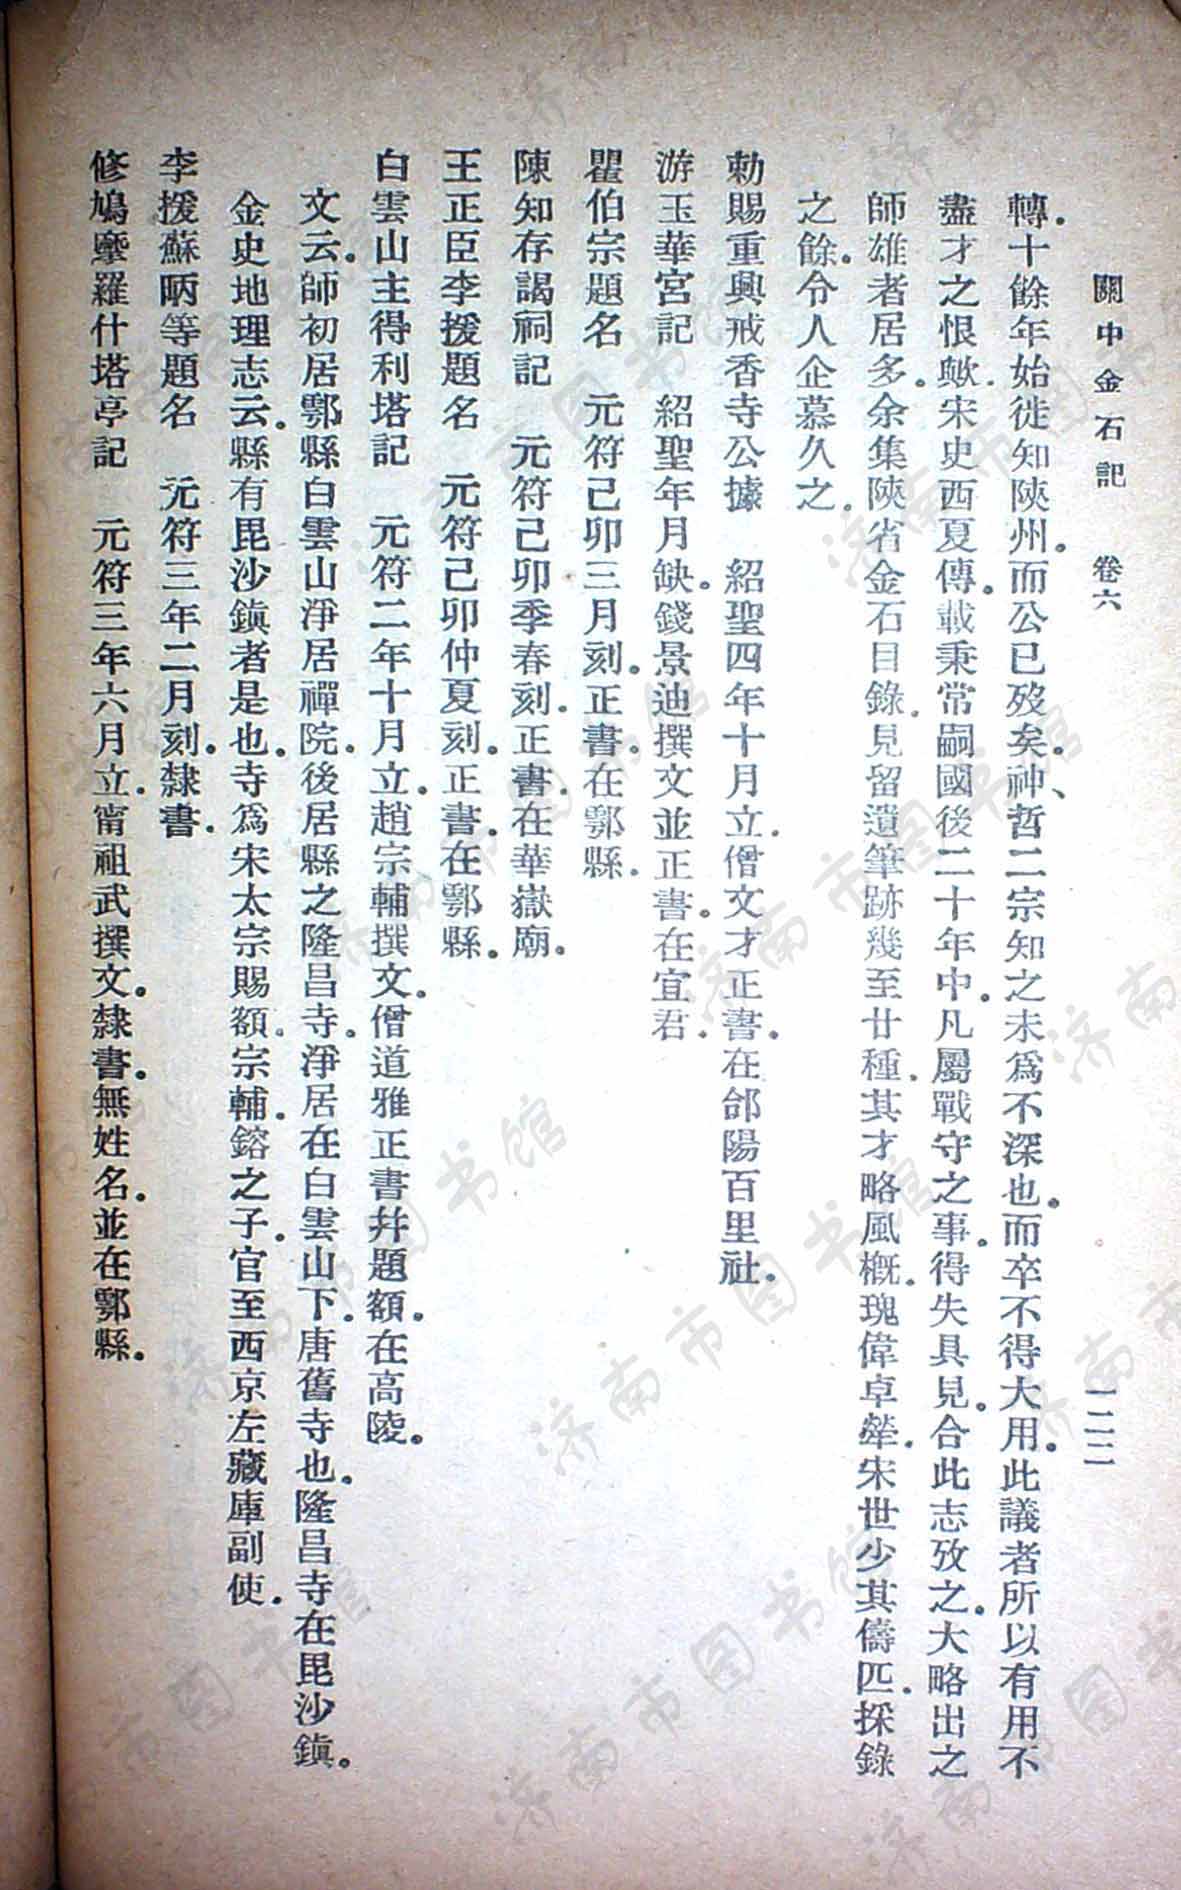 關中金石記　卷六　一二二
轉。十餘年始徙知陝州。而公已歿矣。神、哲二宗知之未爲不深也。而卒不得大用。此議者所以有用不
盡才之恨歟。宋史西夏傳。載秉常嗣國後二十年中。凡屬戰守之事。得失具見。合此志攷之。大略出之
師雄者居多。余集陝省金石目錄。見留遺筆跡幾至廿種。其才略風概。瑰偉卓犖。宋世少其儔匹。採錄
之餘。令人企慕久之。
勅賜重興戒香寺公據　紹聖四年十月立。僧文才正書。在郃陽百里社。
游玉華宮記　紹聖年月缺。錢景迪撰文並正書。在宜君。
瞿伯宗題名　元符己卯三月刻。正書。在鄠縣。
陳知存謁祠記　元符己卯季春刻。正書。在華嶽廟。
王正臣李援題名　元符己卯仲夏刻。正書。在鄠縣。
白雲山主得利塔記　元符二年十月立。趙宗輔撰文。僧道雅正書幷題額。在高陵。
文云。師初居鄠縣白雲山淨居禪院。後居縣之隆昌寺。淨居在白雲山下。唐舊寺也。隆昌寺在毘沙鎮。
金史地理志云。縣有毘沙鎮者是也。寺爲宋太宗賜額。宗輔。鎔之子。官至西京左藏庫副使。
李援蘇昞等題名　元符三年二月刻。隸書。
修鳩摩羅什塔亭記　元符三年六月立。甯祖武撰文。隸書。無姓名。並在鄠縣。